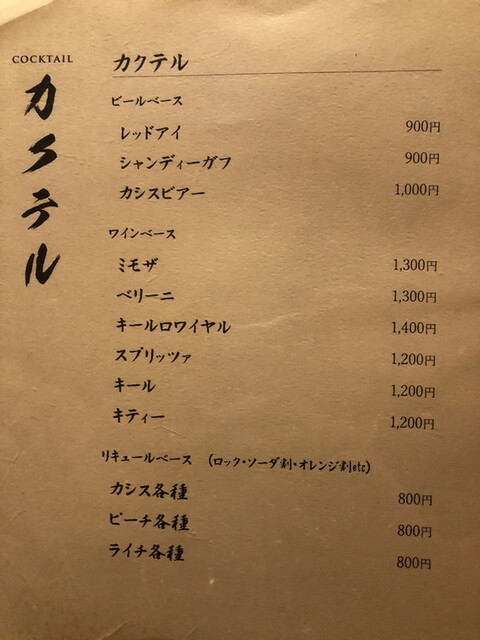 COCKTAIL
カクテル
カクテル
ビールベース
レッドアイ 900円
シャンディーガフ 900円
カシスビアー 1,000円
ワインベース
ミモザ 1,300円
ベリーニ 1,300円
キールロワイヤル 1,400円
スプリッツァ 1,200円
キール 1,200円
キティー 1,200円
リキュールベース (ロック・ソーダ割・オレンジ割etc)
カシス各種 800円
ピーチ各種 800円
ライチ各種 800円